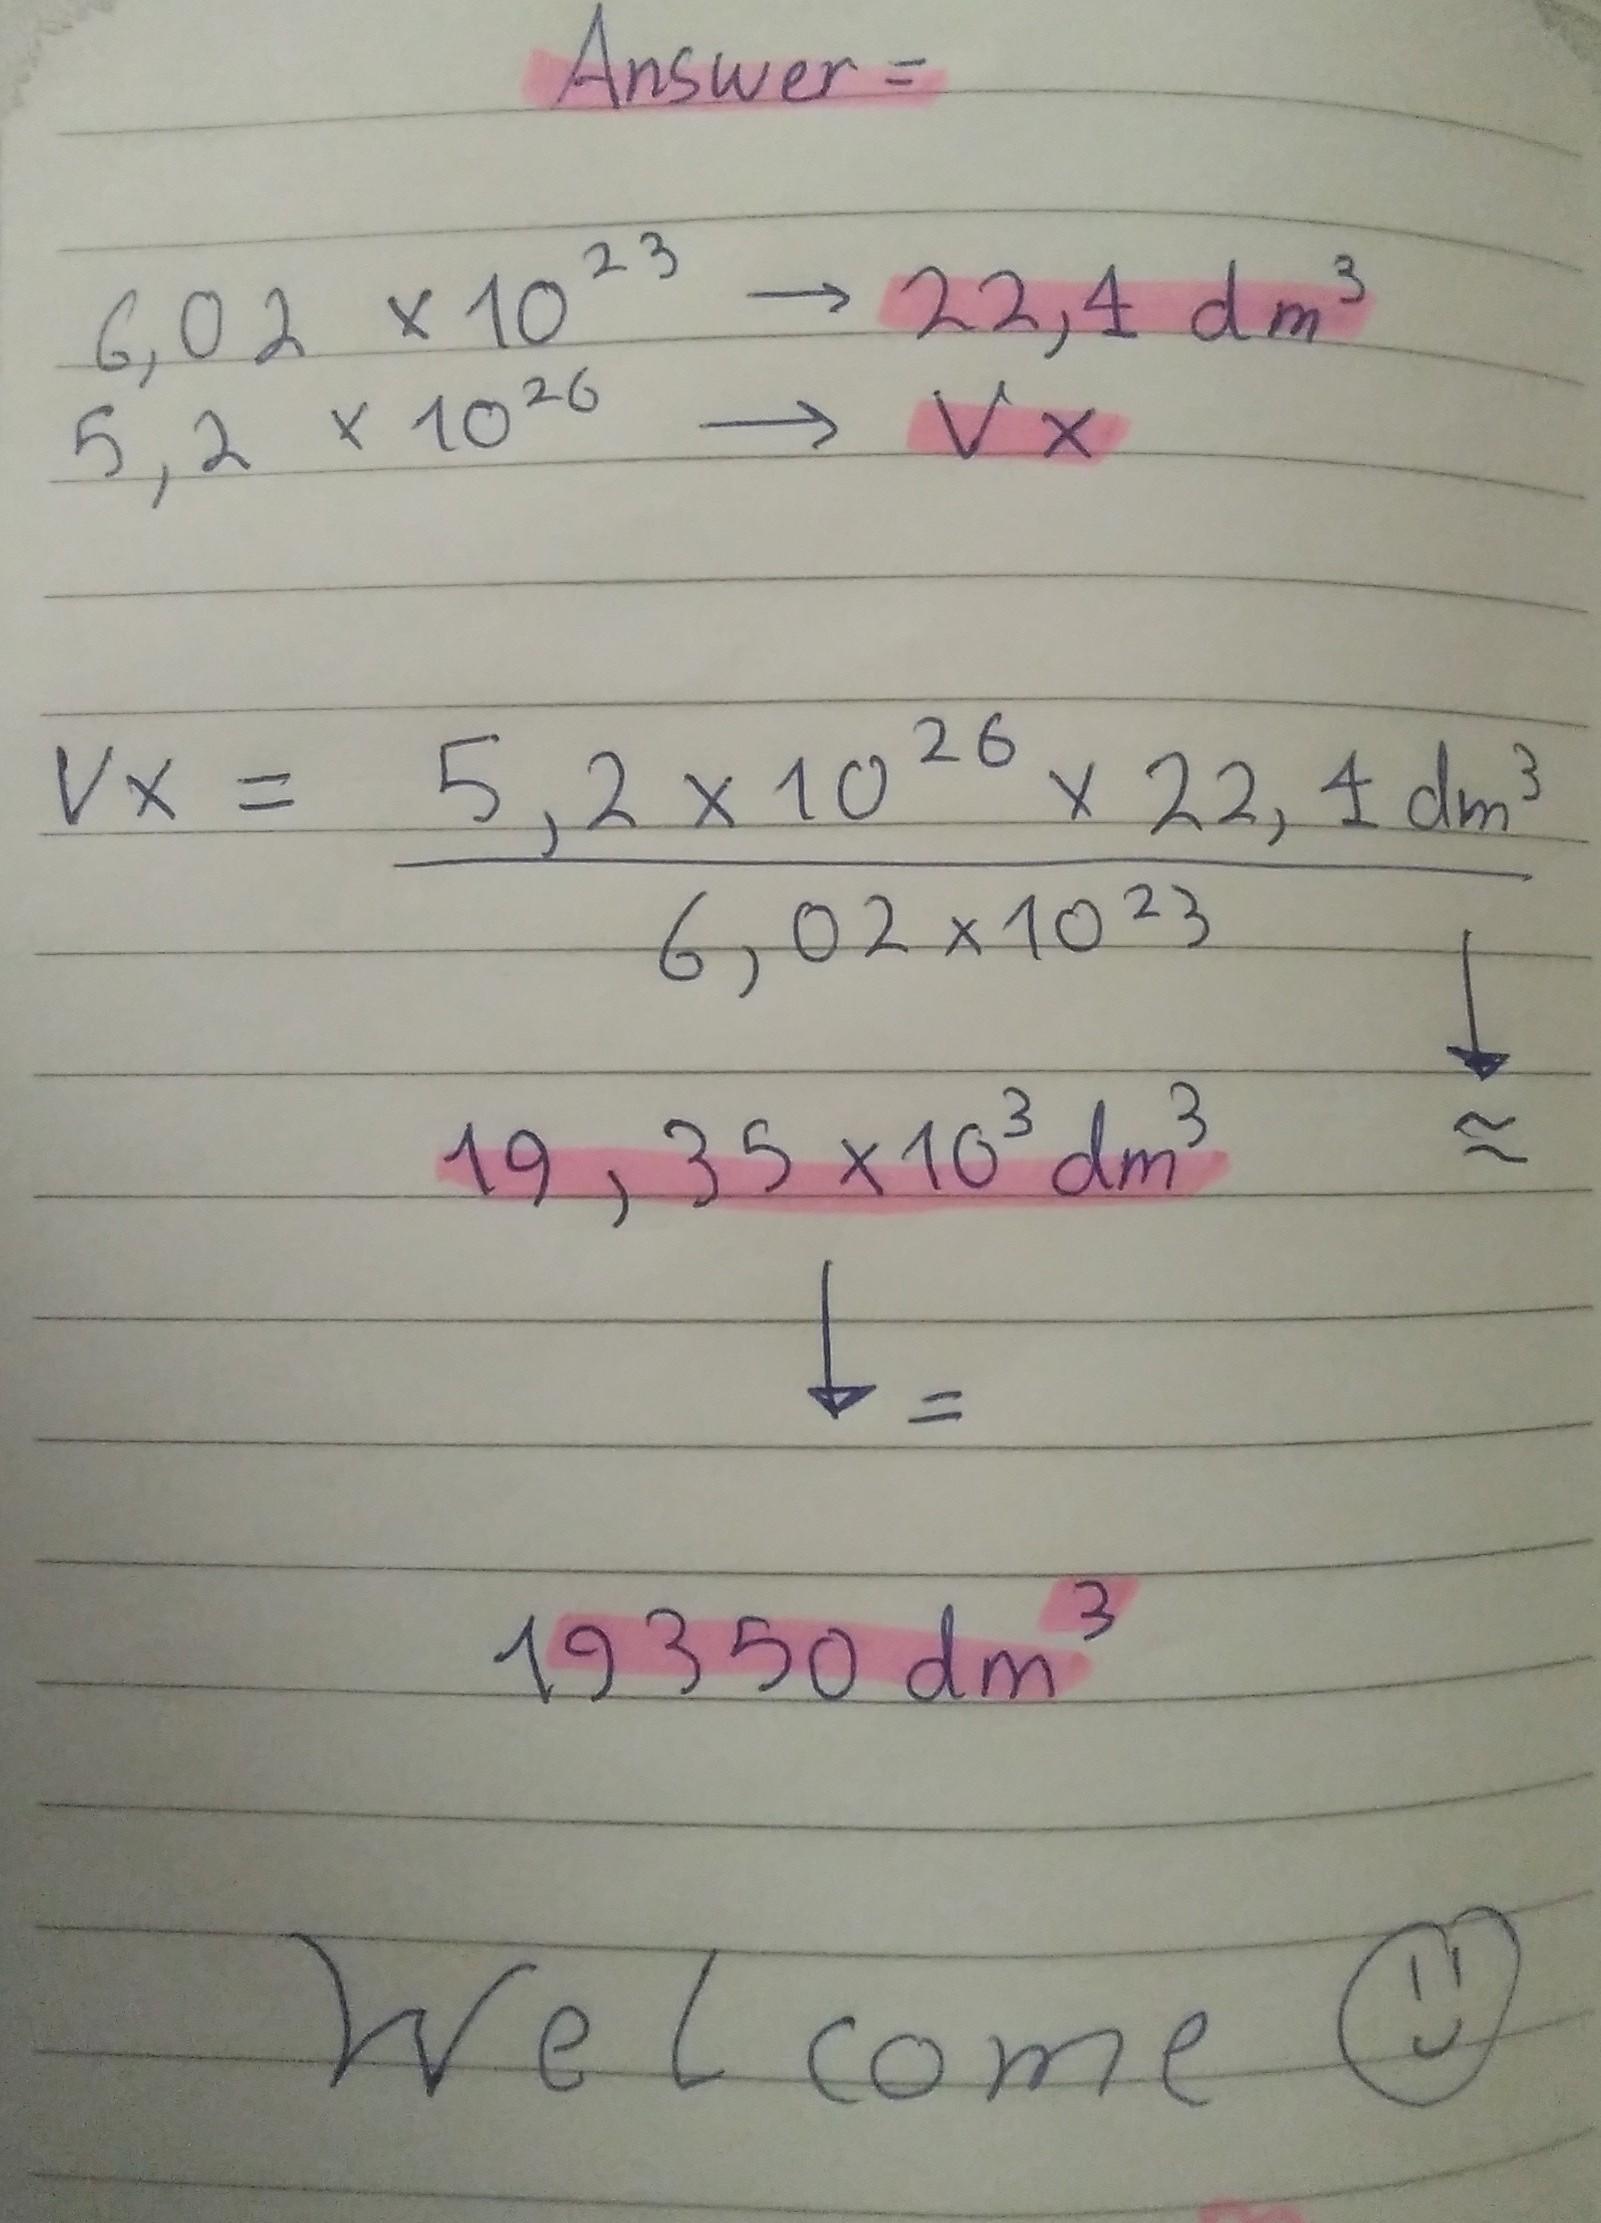 Answer =
6,02 × 10²³ → 22,4 dm³
5,2 × 10²⁶ → Vx
Vx = 5,2 × 10²⁶ × 22,4 dm³
6,02 × 10²³
↓
19,35 × 10³ dm³ ≈
↓ =
19350 dm³
Welcome